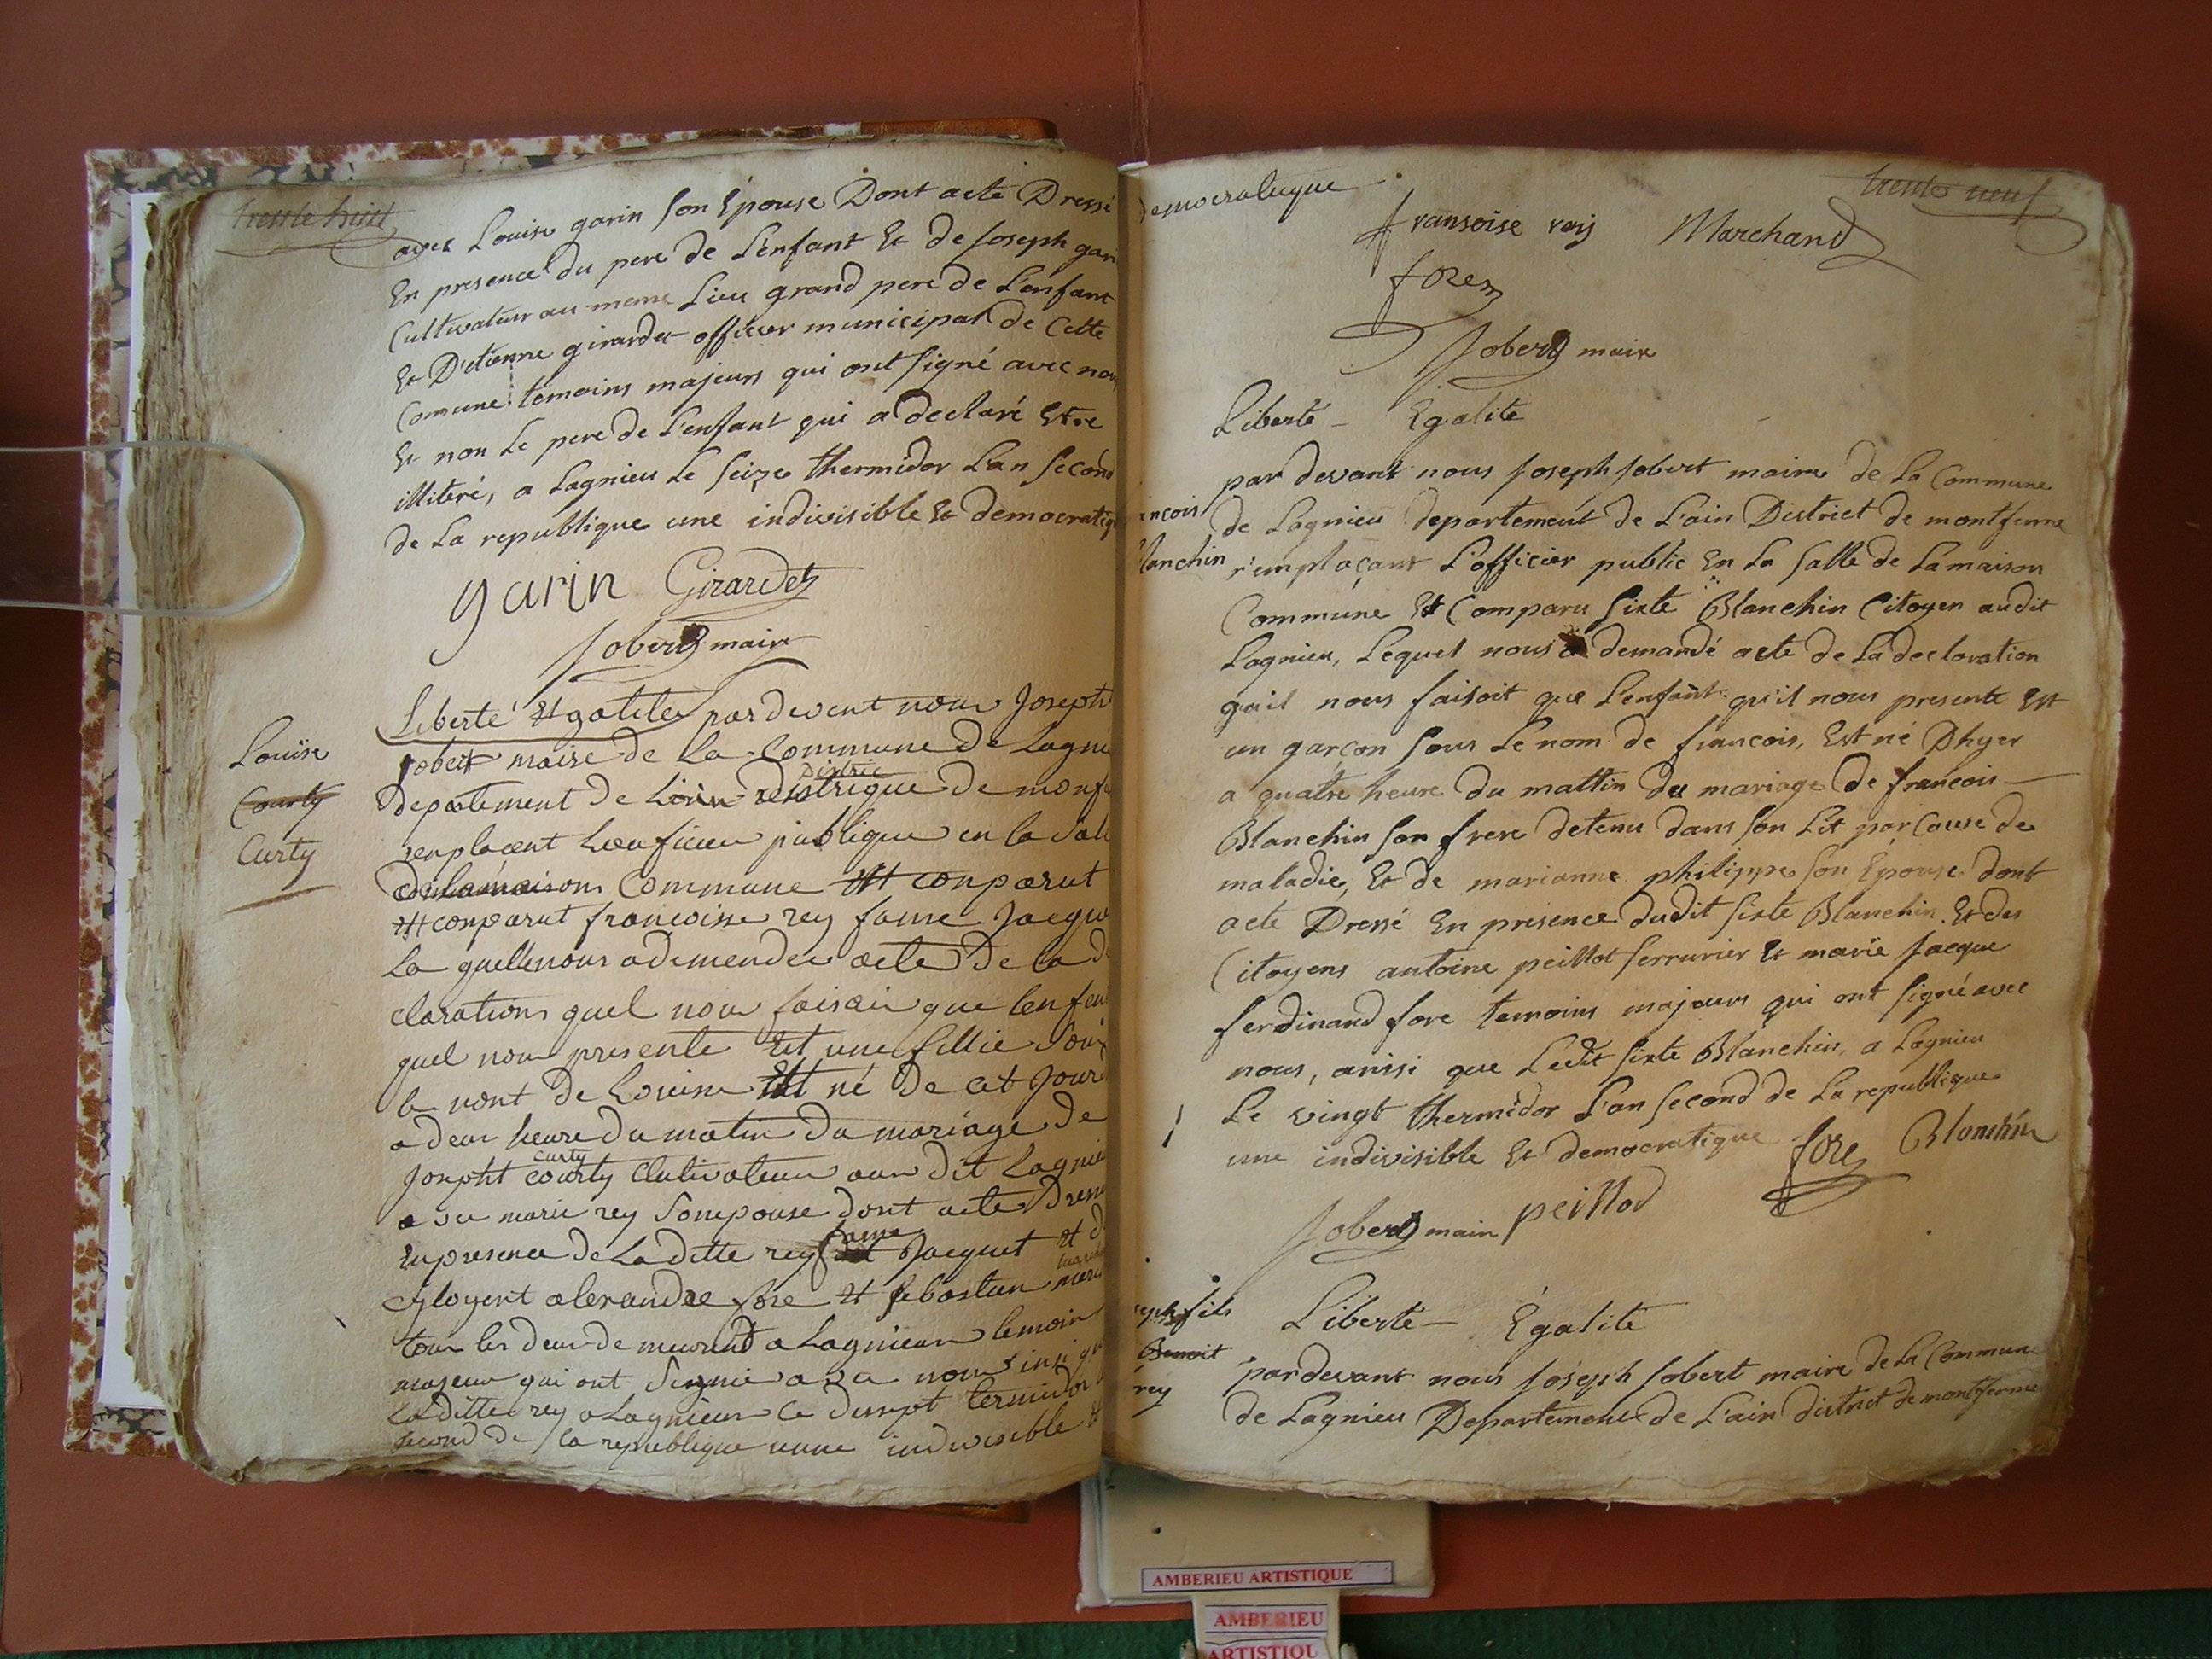 trente huit
avec Louise garin son Épouse Dont acte Dressé
En presence du pere de L'enfant Et de Joseph gari
Cultivateur au meme Lieu grand pere de L'enfant
Et D'etienne girardet officier municipal de Cette
Comune temoins majeurs qui ont signé avec nou
Et non Le pere de L'enfant qui a declaré Etre
illiteré, a Lagnieu Le seize thermidor L'an second
de La republique une indivisible Et democratiq
garin Girardet
Jobert maire
Louise
Courty
Curty
Liberté Egalité pardevent nous Joseph
Jobert maire de La Commune de Lagnie
departement de Distric
distrique de monf
remplacent publique en la sale
de lamaison Commune Est conparut
Est conparut francoisse rey fame Jacque
La quelle nous a demendee acte de la de
claration quel nou faisai que lenfen
quel nou presente Est une fillie
le nont de Louise Est né de cet Jour
a deux heure du matin du mariage de
curty
Jospht courty Cultivateur au dit Lagnie
avec marie rey son epouse dont acte Dresse
fame
en presence de Laditte rey Jacquet et d
alexandre fore Et sebastien
marcha
tous les deux demeurend a Lagnieux temoin
majeur qui ont signie avec nous insi que
La ditte rey a Lagnieux Le termidor
second de la republique unne indivisible et
trente neuf
democratique
fransoise reij Marchand
fore
Jobert maire
Liberté - Egalité
ancois
lanchin
par devant nous Joseph Jobert maire de La Commune
de Lagnieu departement de L'ain District de montferme
remplaçant L'officier public En La salle de La maison
Commune Est Comparu sixte Blanchin Citoyen audit
Lagnieu, Lequel nous a demandé acte de La declaration
qu'il nous faisoit que L'enfant qu'il nous presente Est
un garçon sous Le nom de francois, Est né Dhyer
a quatre heure du mattin du mariage de francois
Blanchin son frere detenu dans son Lit par Cause de
maladie, Et de marianne philippe son Épouse dont
acte Dressé En presence dudit sixte Blanchin Et des
Citoyens antoine peillot serrurier Et marie Jacque
ferdinand fore temoins majeurs qui ont signé avec
nous, ainsi que Ledit sixte Blanchin, a Lagnieu
Le vingt thermidor L'an second de La republique
une indivisible Et democratique fore Blanchin
Jobert maire peillod
eph fils
Benoit
rey
Liberté - Egalité
pardevant nous Joseph Jobert maire de La Commune
de Lagnieu Departement de L'ain district de montferme
AMBERIEU ARTISTIQUE
AMBERIEU
ARTISTIQU